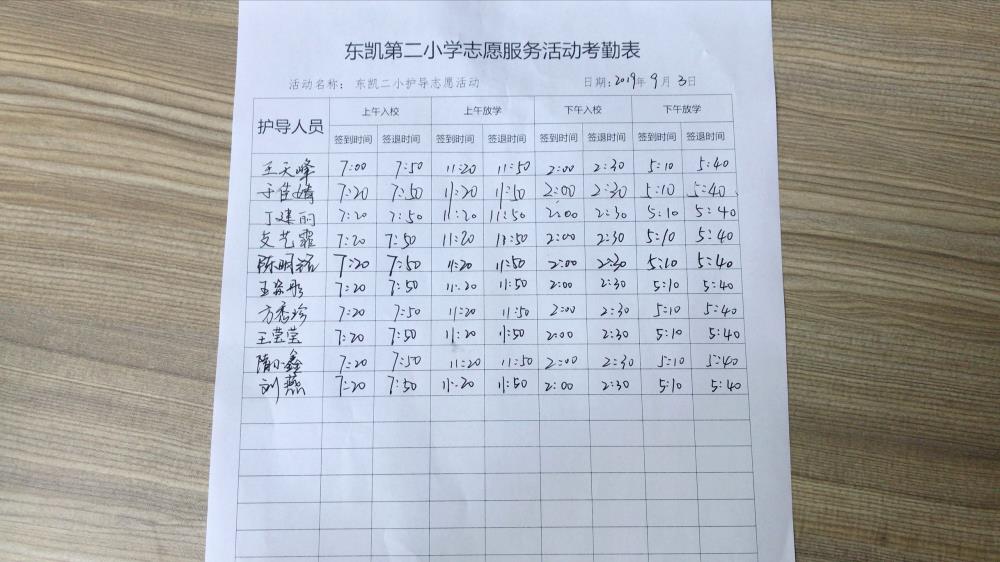 东凯第二小学志愿服务活动考勤表
活动名称： 东凯二小护导志愿活动 日期：2019年9月3日
护导人员 上午入校 上午放学 下午入校 下午放学
签到时间 签退时间 签到时间 签退时间 签到时间 签退时间 签到时间 签退时间
王天峰 7:00 7:50 11:20 11:50 2:00 2:30 5:10 5:40
于佳婧 7:20 7:50 11:20 11:50 2:00 2:30 5:10 5:40
丁建丽 7:20 7:50 11:20 11:50 2:00 2:30 5:10 5:40
艺霏 7:20 7:50 11:20 11:50 2:00 2:30 5:10 5:40
陈明铭 7:20 7:50 11:20 11:50 2:00 2:30 5:10 5:40
王 7:20 7:50 11:20 11:50 2:00 2:30 5:10 5:40
方秀珍 7:20 7:50 11:20 11:50 2:00 2:30 5:10 5:40
王莹莹 7:20 7:50 11:20 11:50 2:00 2:30 5:10 5:40
隋小鑫 7:20 7:50 11:20 11:50 2:00 2:30 5:10 5:40
刘燕 7:20 7:50 11:20 11:50 2:00 2:30 5:10 5:40